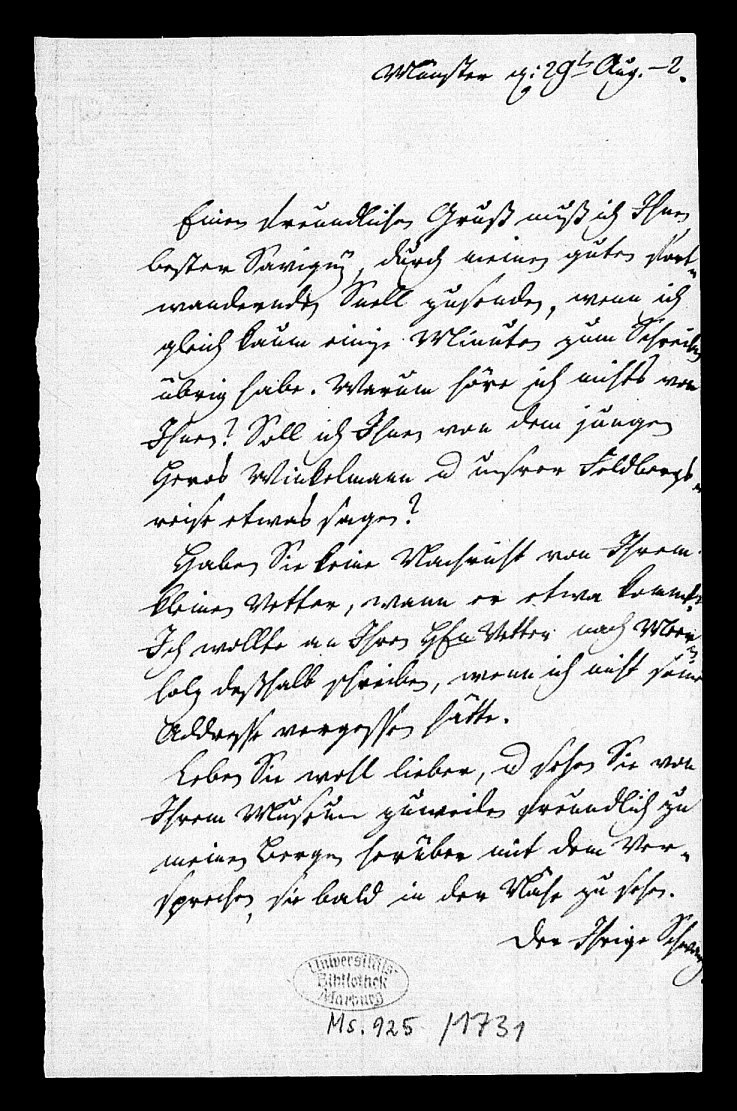 Münster d: 29t Aug. – 2.
Einen freundlichen Gruß muß ich Ihnen
bester Savigny, durch meinen guten fort-
wandernden Snell zusenden, wenn ich
gleich kaum einige Minuten zum Schreiben
übrig habe. Warum höre ich nichts von
Ihnen? Soll ich Ihnen von dem jungen
Heros Winkelmann u unsrer Feldbergs-
reise etwas sagen?
Haben Sie keine Nachricht von Ihrem
kleinen Vetter, wann er etwa kommt?
Ich wollte an Ihren Hfn Vetter nach Meer-
holz deßhalb schreiben, wenn ich nicht seine
Addresse vergessen hätte.
Leben Sie wohl lieber, u sehen Sie von
Ihrem Museum zuweilen freundlich zu
meinen Bergen herüber mit dem Ver-
sprechen, sie bald in der Nähe zu sehen.
Der Ihrige Schwarz.
Universitäts-
Bibliothek
Marburg
Ms. 925 /1731